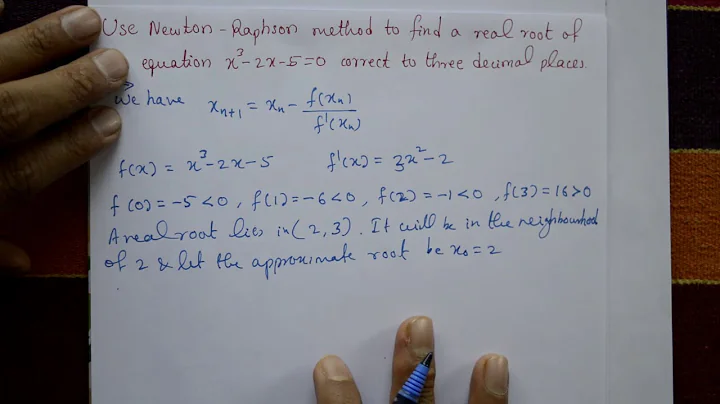 Use Newton-Raphson method to find a real root of
equation x³-2x-5=0 correct to three decimal places.
We have xₙ₊₁ = xₙ - f(xₙ)/f'(xₙ)
f(x) = x³-2x-5 f'(x) = 3x²-2
f(0)=-5<0, f(1)=-6<0, f(2)=-1<0, f(3)=16>0
A real root lies in (2,3). It will be in the neighbourhood
of 2 & let the approximate root be x₀=2